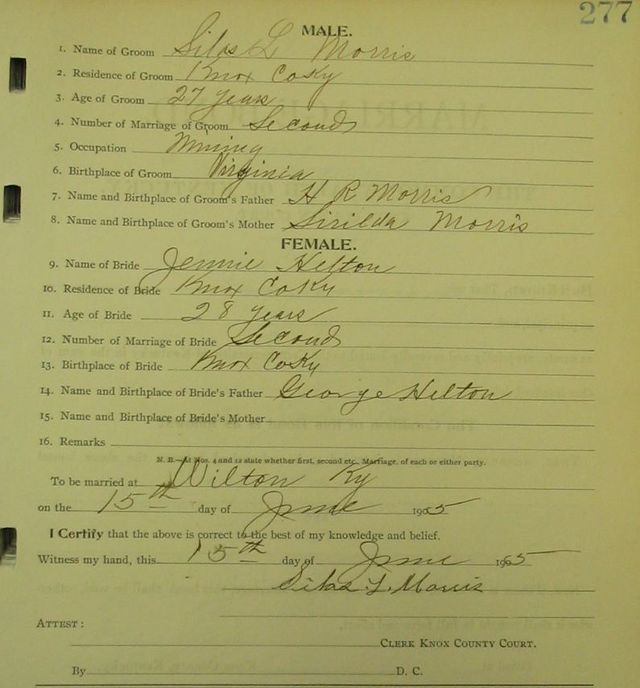 277
MALE.
1. Name of Groom Silas L Morris
2. Residence of Groom Knox Co Ky
3. Age of Groom 27 years
4. Number of Marriage of Groom Second
5. Occupation Mining
6. Birthplace of Groom Virginia
7. Name and Birthplace of Groom's Father H R Morris
8. Name and Birthplace of Groom's Mother Sirilda Morris
FEMALE.
9. Name of Bride Jennie Helton
10. Residence of Bride Knox Co Ky
11. Age of Bride 28 years
12. Number of Marriage of Bride Second
13. Birthplace of Bride Knox Co Ky
14. Name and Birthplace of Bride's Father George Helton
15. Name and Birthplace of Bride's Mother
16. Remarks
N. B.—At Nos. 4 and 12 state whether first, second etc., Marriage, of each or either party.
To be married at Wilton Ky
on the 15th day of June 1905
I Certify that the above is correct to the best of my knowledge and belief.
Witness my hand, this 15th day of June 1905
Silas L. Morris
ATTEST:
CLERK KNOX COUNTY COURT.
By D. C.